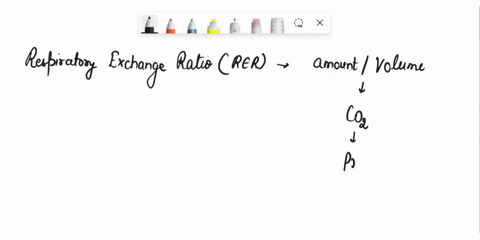 Respiratory Exchange Ratio (RER) → amount / Volume
↓
CO₂
↓